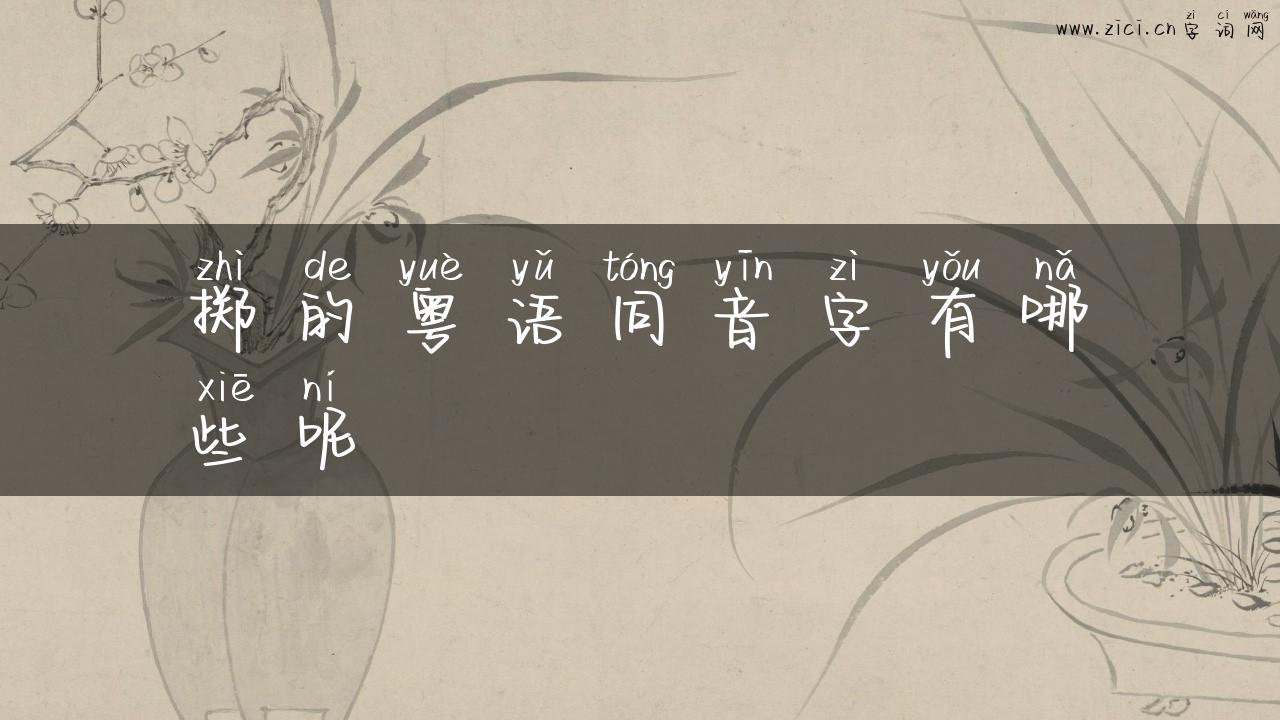 zì cí wǎng
www.zici.cn 字 词 网
zhì de yuè yǔ tóng yīn zì yǒu nǎ
掷 的 粤 语 同 音 字 有 哪
xiē ní
些 呢